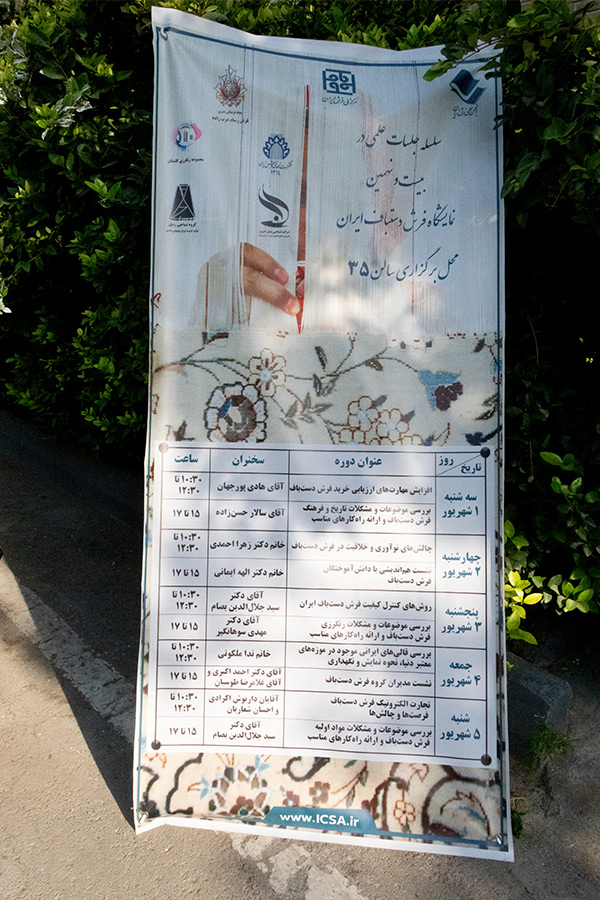 سلسله جلسات علمی در
بیست و نهمین
نمایشگاه فرش دستباف ایران
محل برگزاری سالن ۳۵
مرکز ملی فرش ایران
مجموعه رنگرزی گلستان
۱۳۱۴
تاریخ روز عنوان دوره سخنران ساعت
سه شنبه
۱ شهریور
افزایش مهارت‌های ارزیابی خرید فرش دست‌باف
آقای هادی پورجهان
۱۰:۳۰ تا
۱۲:۳۰
بررسی موضوعات و مشکلات تاریخ و فرهنگ
فرش دست‌باف و ارائه راه‌کارهای مناسب
آقای سالار حسن‌زاده
۱۵ تا ۱۷
چهارشنبه
۲ شهریور
چالش‌های نوآوری و خلاقیت در فرش دست‌باف
خانم دکتر زهرا احمدی
۱۰:۳۰ تا
۱۲:۳۰
نشست هم‌اندیشی با دانش‌آموختگان
فرش دست‌باف
خانم دکتر الهه ایمانی
۱۵ تا ۱۷
پنجشنبه
۳ شهریور
روش‌های کنترل کیفیت فرش دست‌باف ایران
آقای دکتر
سید جلال‌الدین بصام
۱۰:۳۰ تا
۱۲:۳۰
بررسی موضوعات و مشکلات رنگرزی
فرش دست‌باف و ارائه راه‌کارهای مناسب
آقای دکتر
مهدی سوهانگیر
۱۵ تا ۱۷
جمعه
۴ شهریور
بررسی قالی‌های ایرانی موجود در موزه‌های
معتبر دنیا، نحوه نمایش و نگهداری
خانم ندا ملکوتی
۱۰:۳۰ تا
۱۲:۳۰
نشست مدیران گروه فرش دست‌باف
آقای دکتر احمد اکبری و
آقای غلامرضا طوسیان
۱۵ تا ۱۷
شنبه
۵ شهریور
تجارت الکترونیک فرش دست‌باف
فرصت‌ها و چالش‌ها
آقایان داریوش اکرادی
و احسان شعاریان
۱۰:۳۰ تا
۱۲:۳۰
بررسی موضوعات و مشکلات مواد اولیه
فرش دست‌باف و ارائه راه‌کارهای مناسب
آقای دکتر
سید جلال‌الدین بصام
۱۵ تا ۱۷
www.ICSA.ir